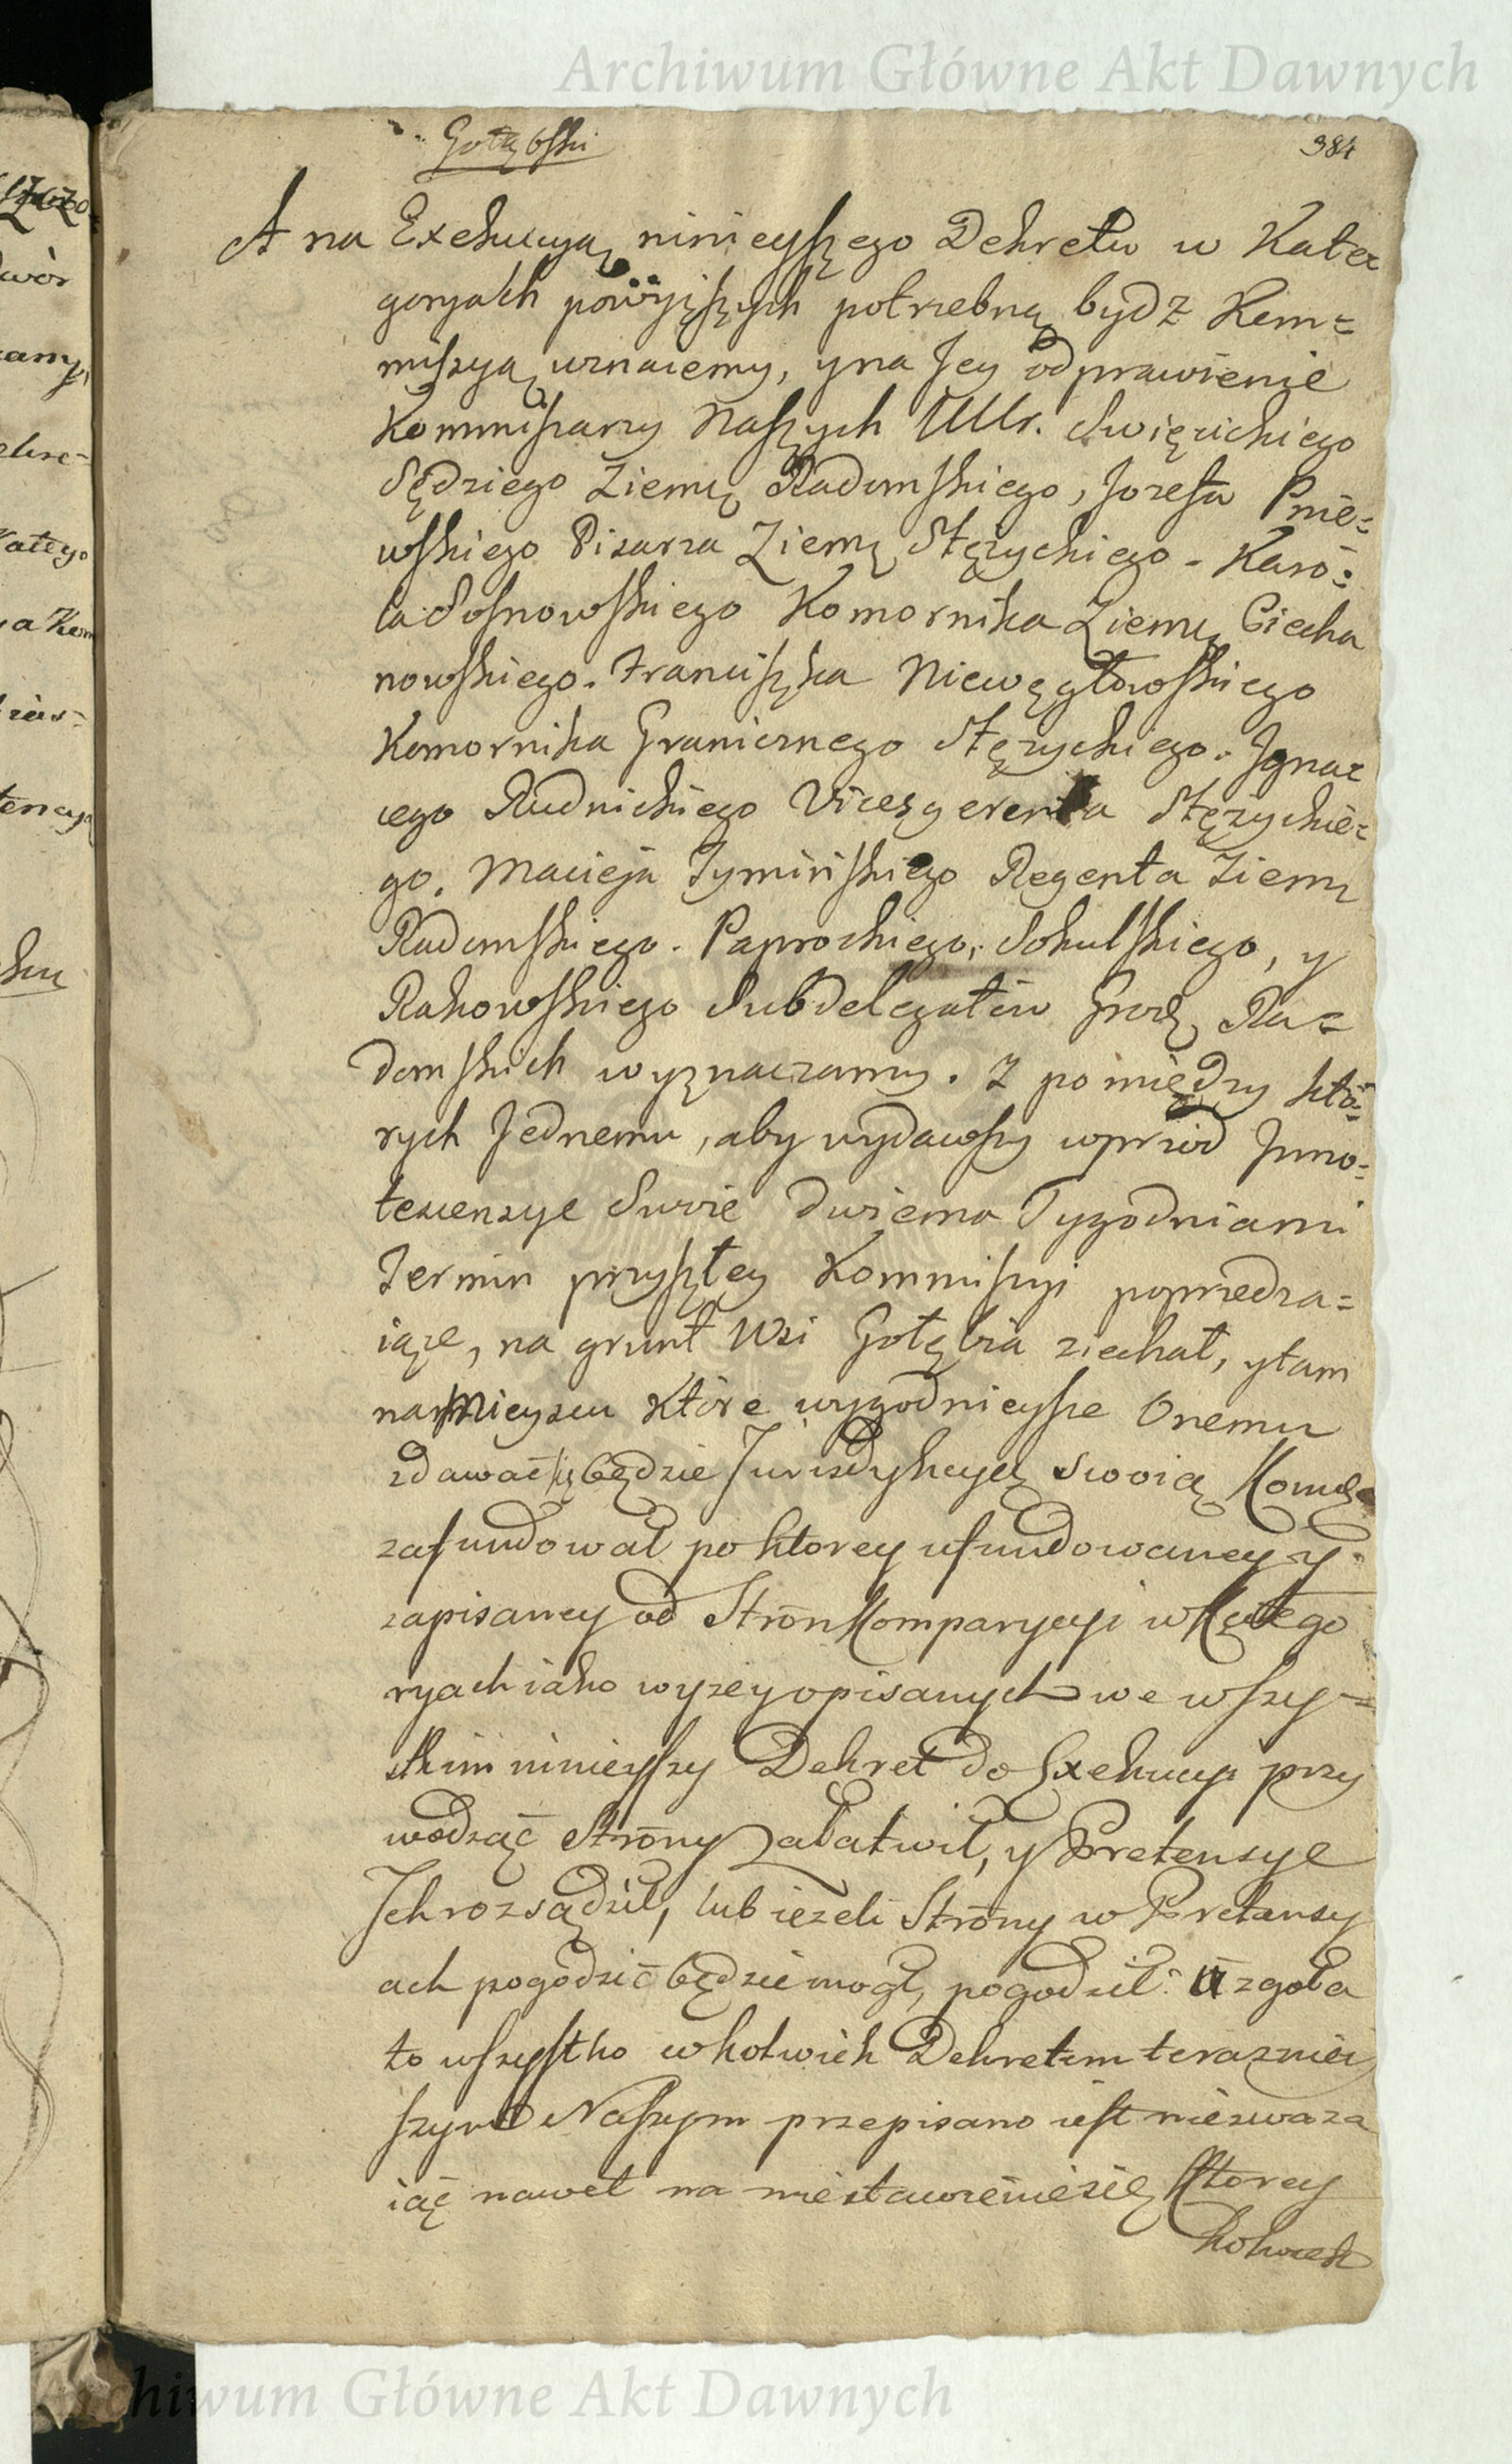 Archiwum Główne Akt Dawnych
Gołębski
384
A na Exekucyą ninieyszego Dekretu w Kate=
goryach powyższych potrzebną bydz Kom=
miszyą uznaiemy, y na Jey odprawienie
Kommiszarzy Naszych Ullr. Swięcickiego
Sędziego Ziemę Radomskiego, Jozefa Pnie=
wskiego Pisarza Ziemę Stężyckiego. Karo=
la Sosnowskiego Komornika Ziemę Ciecha
nowskiego. Franciszka Niewęgłowskiego
Komornika Granicznego Stężyckiego. Ignac
ego Rudnickiego Vicesgerenta Stężyckie=
go. Macieja Tymińskiego Regenta Ziemę
Radomskiego. Paprockiego, Sokulskiego, y
Rakowskiego Subdelegatów Grodz Ra=
domskich wyznaczamy. Z pomiędzy któ=
rych Jednemu, aby wydawszy wprzód Inno=
tescensye Swoie dwiema Tygodniami
Termin przyszłey Kommiszyi poprzedza=
iące, na grunt Wsi Gołębia ziechał, y tam
na Mieyscu które wygodnieysze Onemu
zdawać się będzie Jurizdykcyą Swoią Komę
zafundował po ktorey ufundowaney y
zapisaney od Strón Komparycyi w Katego
ryach iako wyzey opisanych we wszy=
stkim ninieyszy Dekret do Exekucyi przy
wodząć Stróny załatwił, y Pretensye
Ich rozsądził, lub ieżeli Stróny w Pretensy
ach pogodzić będzie mogł, pogodził. A zgoła
to wszystko cokolwiek Dekretem teraznie
szym Naszym przepisano iest niezwaza
iąć nawet na niestawienie się Ktorey
kolwiek
Archiwum Główne Akt Dawnych